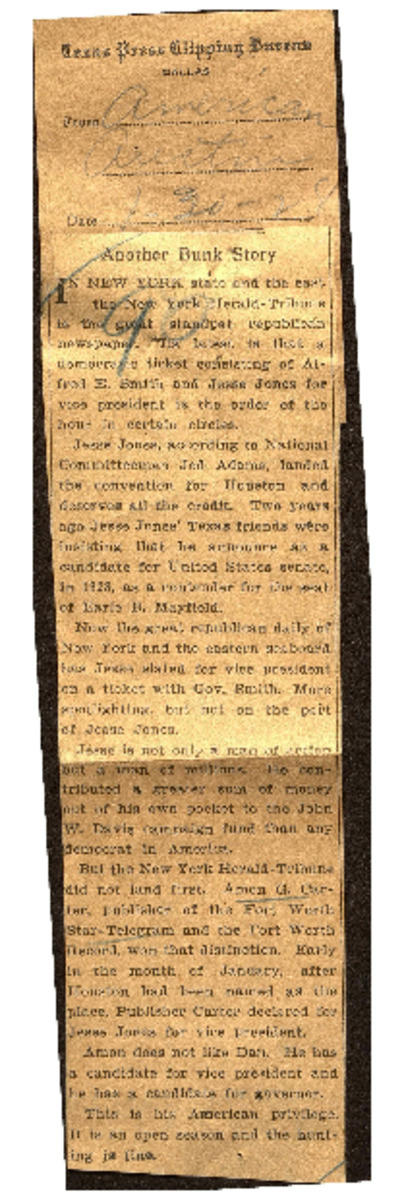 Texas Press Clipping Bureau
DALLAS
From American
Date
Another Bunk Story
IN NEW YORK state and the east
the New York Herald-Tribune
is the great standpat republican
newspaper. The latest is that a
democratic ticket consisting of Al-
fred E. Smith and Jesse Jones for
vice president is the order of the
hour in certain circles.
Jesse Jones, according to National
Committeeman Jed Adams, landed
the convention for Houston and
deserves all the credit. Two years
ago Jesse Jones' Texas friends were
insisting that he announce as a
candidate for United States senate,
in 1928, as a contender for the seat
of Earle B. Mayfield.
Now the great republican daily of
New York and the eastern seaboard
has Jesse slated for vice president
on a ticket with Gov. Smith. More
spotlighting, but not on the part
of Jesse Jones.
Jesse is not only a man of
but a man of millions. He con-
tributed a greater sum of money
out of his own pocket to the John
W. Davis campaign fund than any
democrat in America.
But the New York Herald-Tribune
did not land first. Amon G. Car-
ter, publisher of the Fort Worth
Star-Telegram and the Fort Worth
Record, won that distinction. Early
in the month of January, after
Houston had been named as the
place, Publisher Carter declared for
Jesse Jones for vice president.
Amon does not like Dan. He has
a candidate for vice president and
he has a candidate for governor.
This is his American privilege.
It is an open season and the hunt-
ing is fine.